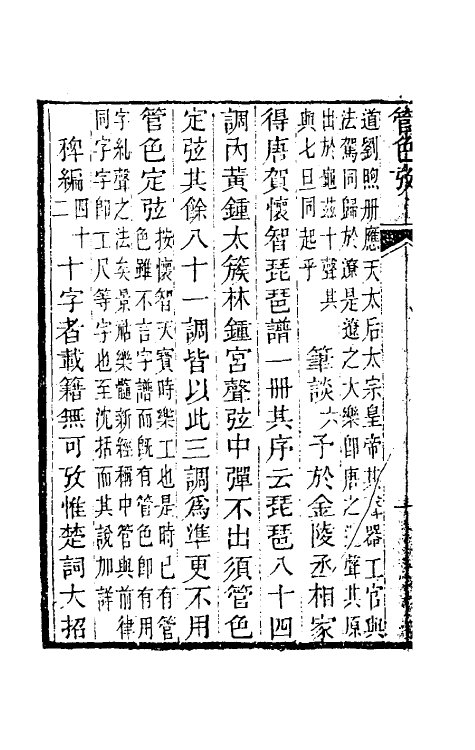 管色攷
道劉昫册應天太后太宗皇帝其聲器工官與
法駕同歸於遼是遼之大樂卽唐之聲其原
出於龜兹十聲其
與七旦同起乎
筆談六 予於金陵丞相家
得唐賀懷智琵琶譜一册其序云琵琶八十四
調内黃鍾太簇林鍾宮聲弦中彈不出須管色
定弦其餘八十一調皆以此三調爲準更不用
管色定弦
按懷智天寶時樂工也是時已有管
色雖不言字譜而旣有管色卽有用
字糺聲之法矣景祐樂髓新經稱中管與前律
同字字卽工尺等字也至沈括而其說加詳
稗編四十二 十字者載籍無可攷惟楚詞大招